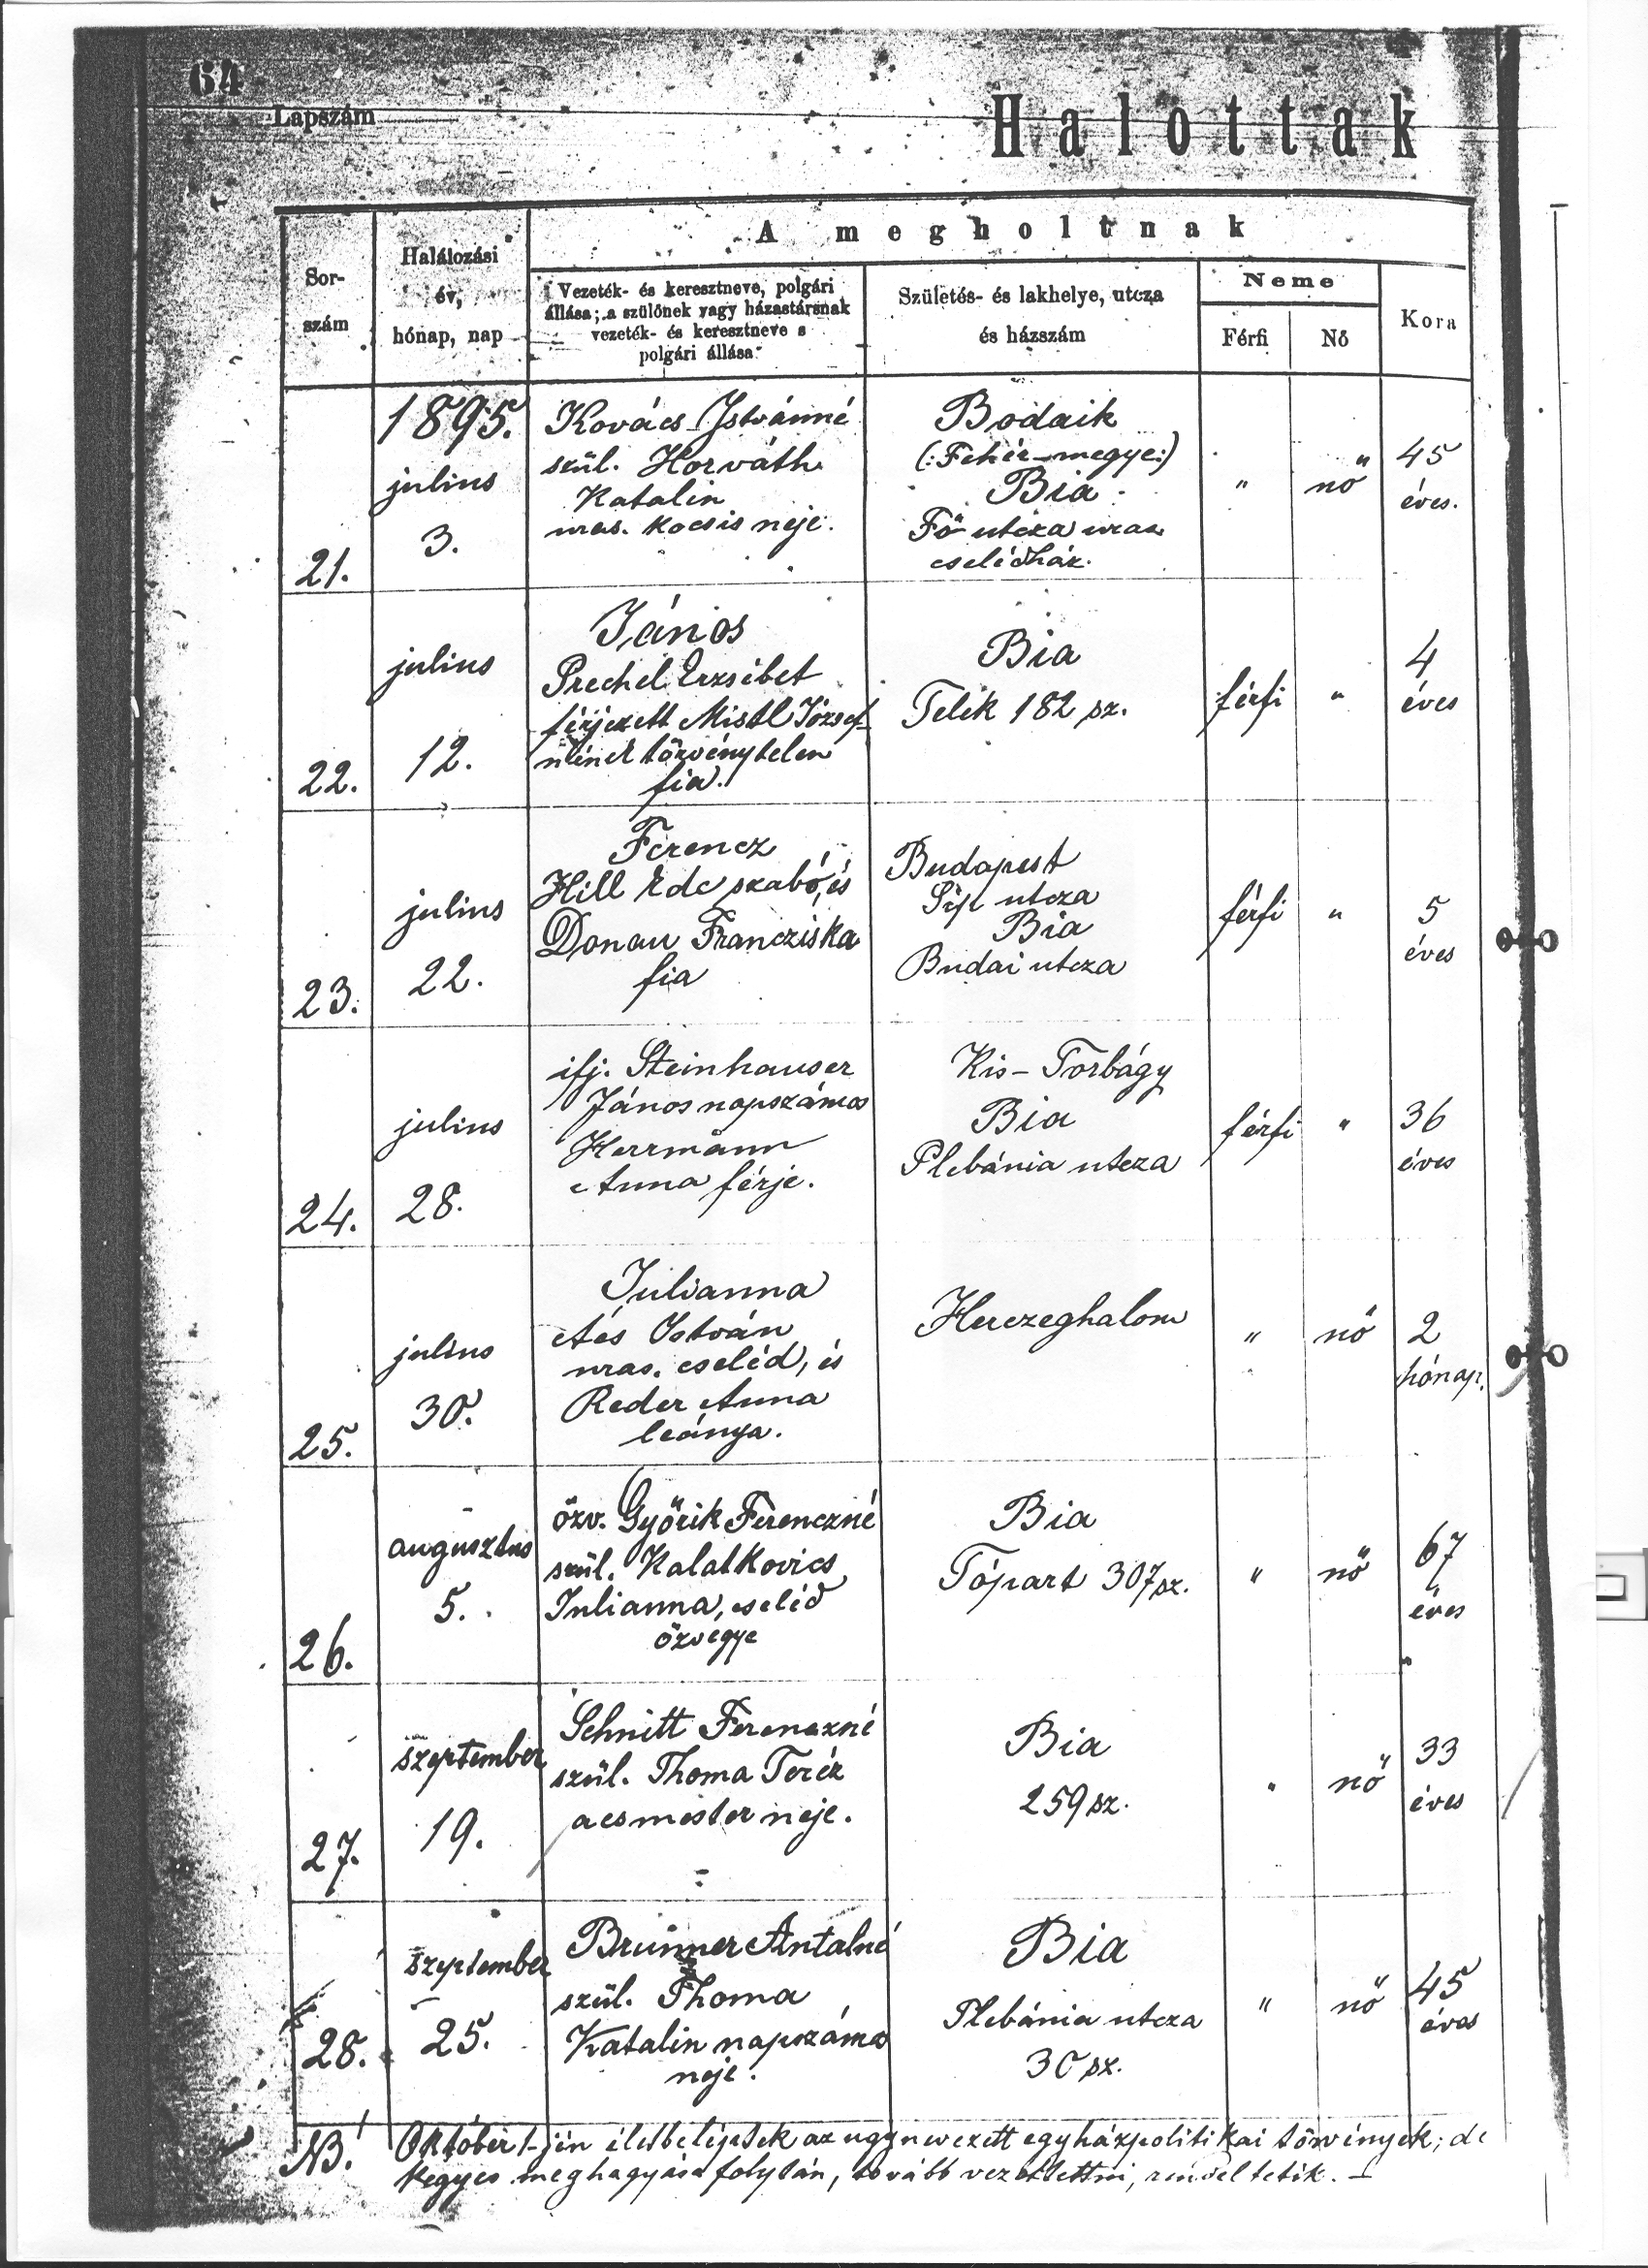 64
Lapszám
Halottak
A megholtnak
Sor-
szám
Halálozási
év,
hónap, nap
Vezeték- és keresztneve, polgári
állása; a szülőnek vagy házastársnak
vezeték- és keresztneve s
polgári állása
Születés- és lakhelye, utcza
és házszám
Neme
Férfi
Nő
Kora
21.
1895.
julius
3.
Kovács Istvánné
szül. Horváth
Katalin
uras. kocsis neje.
Bodaik
(:Fehér-megye:)
Bia
Fő utcza uras.
cselédház.
"
nő
45
éves.
22.
julius
12.
János
Prechel Erzsébet
férjezett Mistl József-
nének törvénytelen
fia.
Bia
Telék 182 sz.
férfi
"
4
éves
23.
julius
22.
Ferencz
Hill Ede szabó, és
Donau Francziska
fia
Budapest
Síp utcza
Bia
Budai utcza
férfi
"
5
éves
24.
julius
28.
ifj. Steinhauser
János napszámos
Herrmann
Anna férje.
Kis-Torbágy
Bia
Plebánia utcza
férfi
"
36
éves
25.
julius
30.
Julianna
Ács István
uras. cseléd, és
Reder Anna
leánya.
Herczeghalom
"
nő
2
hónap.
26.
augusztus
5.
özv. Győrik Ferenczné
szül. Kalatkovics
Julianna, cseléd
özvegye
Bia
Tópart 307 sz.
"
nő
67
éves
27.
szeptember
19.
Schnitt Ferenczné
szül. Thoma Teréz
acsmester neje.
Bia
259 sz.
"
nő
33
éves
28.
szeptember
25.
Brunner Antalné
szül. Thoma
Katalin napszámos
neje.
Bia
Plebánia utcza
30 sz.
"
nő
45
éves
NB! Október 1-jén életbe léptek az ugynevezett egyházpolitikai törvények; de
kegyes meghagyása folytán, tovább vezettetni, rendeltetik. –